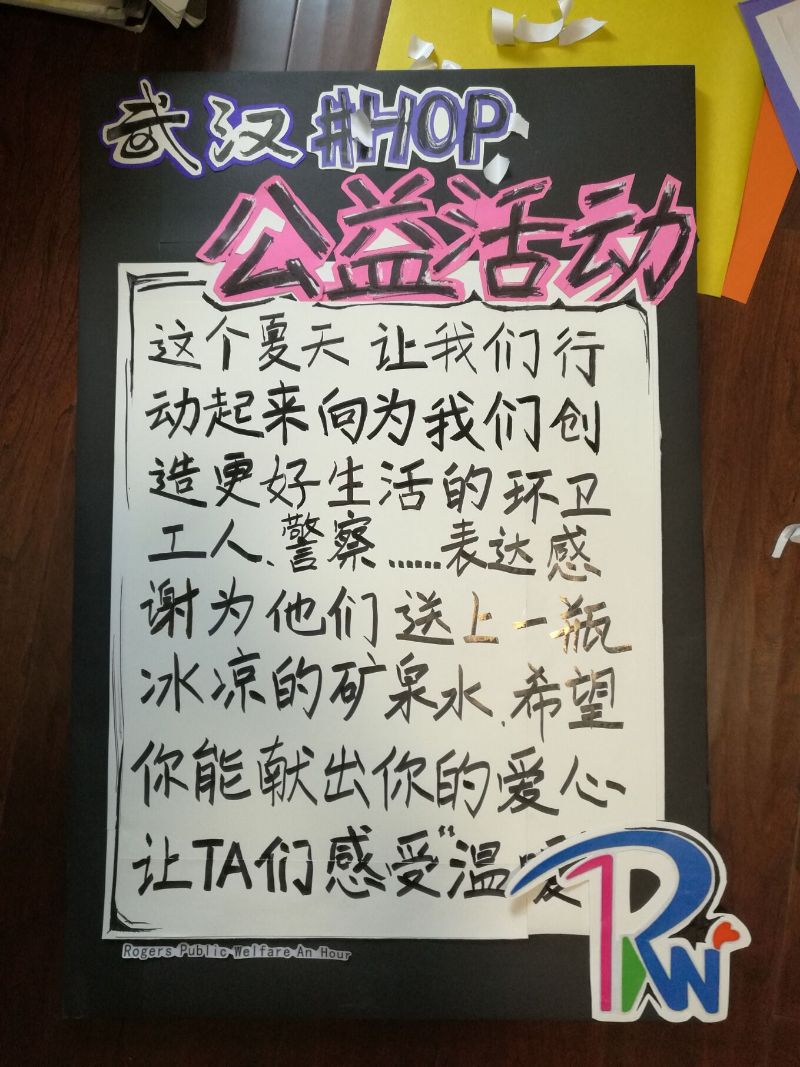 武汉#HOP
公益活动
这个夏天 让我们行
动起来向为我们创
造更好生活的环卫
工人、警察……表达感
谢为他们送上一瓶
冰凉的矿泉水、希望
你能献出你的爱心
让TA们感受"温暖
Rogers Public Welfare An Hour
RW